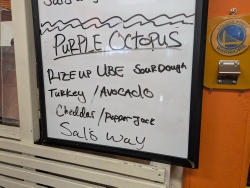 PURPLE OCTOPUS
RIZE UP UBE SOURDOUGH
TURKEY / AVOCADO
Cheddar / Pepper Jack
Sal's Way